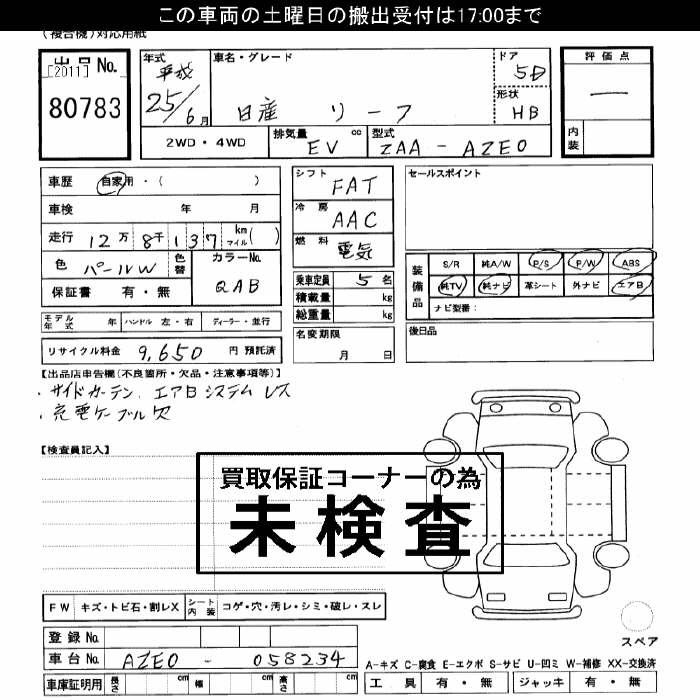 この車両の土曜日の搬出受付は17:00まで
(複合機)対応用紙
出品 No.
[2011]
80783
年式 平成 25/6月
車名・グレード
日産 リーフ
ドア 5D
形状 HB
2WD・4WD
排気量 EV cc
型式 ZAA-AZE0
評価点
内装
車歴 自家用・( )
車検 年 月
走行 12万 8千 137 km マイル( )
色 パールW 色替
カラーNo. QAB
保証書 有・無
モデル年式 年 ハンドル 左・右 ディーラー・並行
リサイクル料金 9,650 円 預託済
シフト FAT
冷房 AAC
燃料 電気
乗車定員 5名
積載量 kg
総重量 kg
名変期限
月 日
セールスポイント
装備品
S/R 純A/W P/S P/W ABS
純TV 純ナビ 革シート 外ナビ エアB
ナビ型番:
後日品
【出品店申告欄(不良箇所・欠品・注意事項等)】
・サイドカーテン エアBシステムレス
・充電ケーブル欠
【検査員記入】
買取保証コーナーの為
未検査
FW キズ・トビ石・割レX シート内装 コゲ・穴・汚レ・シミ・破レ・スレ
登録 No.
車台 No. AZE0-058234
車庫証明用 長さ cm 幅 cm 高さ cm
スペア
A-キズ C-腐食 E-エクボ S-サビ U-凹ミ W-補修 XX-交換済
工具 有・無 ジャッキ 有・無